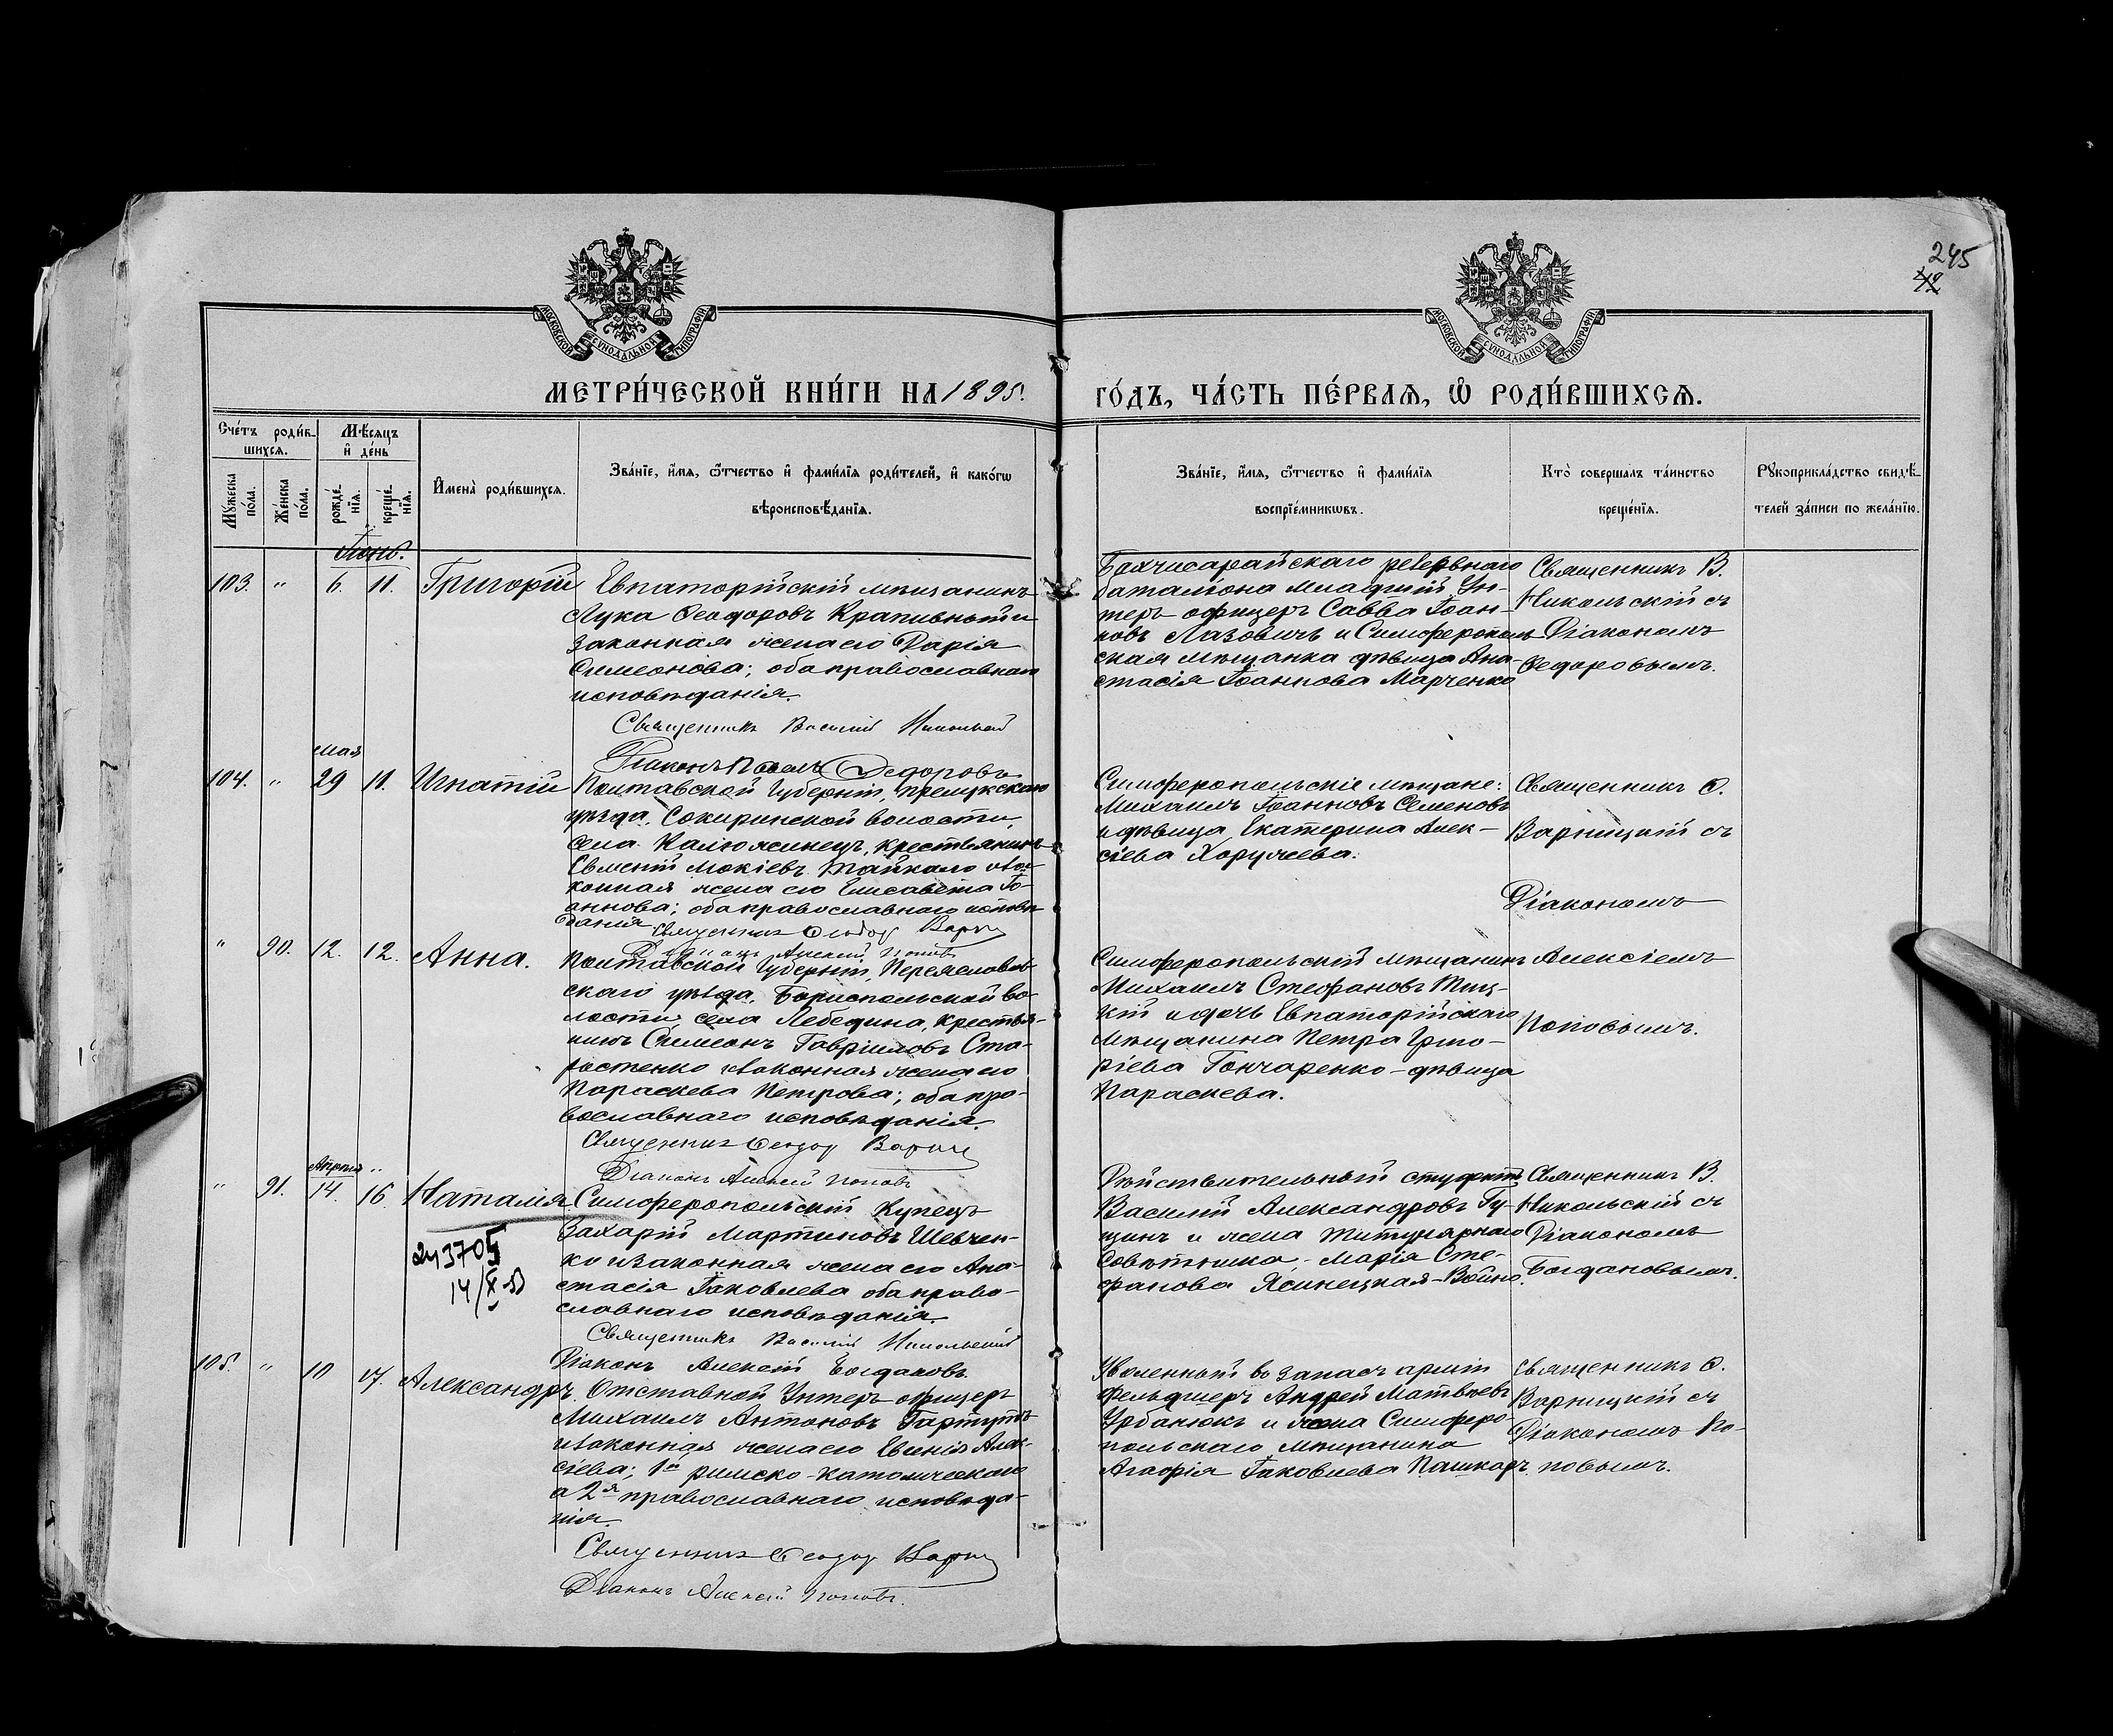 245
42
МОСКОВСКОЙ СѴНОДАЛЬНОЙ ТИПОГРАФІИ
МОСКОВСКОЙ СѴНОДАЛЬНОЙ ТИПОГРАФІИ
МЕТРИ́ЧЕСКОЙ КНИ́ГИ НА 1895.
ГО́ДЪ, ЧА́СТЬ ПЕ́РВАѦ, Ѽ РОДИ́ВШИХСѦ.
Сче́тъ роди́в-
шихсѧ.
Мѣ́сѧцъ
и҆ де́нь
Мꙋ́жеска по́ла.
Же́нска по́ла.
рожде́нїѧ.
креще́нїѧ.
И҆мена̀ роди́вшихсѧ.
Зва́нїе, и҆́мѧ, ѻ҆́тчество и҆ фами́лїѧ роди́телей, и҆ како́гѡ
вѣроисповѣ́данїѧ.
Зва́нїе, и҆́мѧ, ѻ҆́тчество и҆ фами́лїѧ
воспрїе́мникѡвъ.
Кто̀ соверша́лъ та́инство
креще́нїѧ.
Рꙋкоприкла́дство свидѣ́-
телей за́писи по жела́нїю.
Іюнь.
103. " 6. 11. Григорій
Евпаторійскій мѣщанинъ
Лука Ѳеодоровъ Крапивный и
законная жена его Дарія
Симеонова; оба православнаго
исповѣданія.
Священникъ Василій Никольскій
Діаконъ Павелъ Ѳедоровъ
Бахчисарайскаго резервнаго
баталіона младшій Ун-
теръ-офицеръ Савва Іоан-
новъ Лазовичъ и Симферополь-
ская мѣщанка дѣвица Ана-
стасія Іоаннова Марченко
Священникъ В.
Никольскій съ
Діакономъ
Ѳедоровымъ.
Мая
104. " 29 11. Игнатій
Полтавской Губерніи, Прилукскаго
уѣзда, Сокиринской волости,
села Калюжинецъ, крестьянинъ
Евмений Мокіевъ Тайкало и за-
конная жена его Елисавета Іо-
аннова; оба православнаго исповѣ-
данія. Священникъ Ѳеодор Варн
Діаконъ Алексій Поповъ
Симферопольскіе мѣщане:
Михаилъ Іоанновъ Семеновъ
и дѣвица Екатерина Алек-
сіева Хоружева.
Священникъ Ѳ.
Варницкій съ
Діакономъ
" 90. 12. 12. Анна.
Полтавской Губерніи, Переяслав-
скаго уѣзда, Бориспольской во-
лости, села Лебедина, крестья-
нинъ Симеонъ Гавріиловъ Ста-
ростенко и законная жена его
Параскева Петрова; оба пра-
вославнаго исповѣданія.
Священникъ Ѳеодор Варни
Діаконъ Алексій Поповъ
Симферопольскій мѣщанинъ
Михаилъ Стефановъ Тиц-
кій и дочь Евпаторійскаго
мѣщанина Петра Григо-
ріева Гончаренко - дѣвица
Параскева.
Алексіемъ
Поповымъ.
Апрѣля "
" 91. 14. 16. Наталія
Симферопольскій Купецъ
Захарій Мартиновъ Шевчен-
ко и законная жена его Ана-
стасія Іаковлева оба право-
славнаго исповѣданія.
Священникъ Василій Никольскій
Діаконъ Алексій Богдановъ.
Дѣйствительный студентъ
Василій Александровъ Гу-
щинъ и жена титулярнаго
Совѣтника, - Марія Сте-
фанова Ясинецкая-Война.
Священникъ В.
Никольскій съ
Діакономъ
Богдановымъ.
105. " 10 17. Александръ.
Отставной Унтеръ-офицеръ
Михаилъ Антоновъ Гартутъ
и законная жена его Евгенія Алек-
сіева; 1й римско-католическаго
а 2я православнаго исповѣда-
нія.
Священникъ Ѳеодор Варн
Діаконъ Алексій Поповъ.
Уволенный въ запасъ арміи
фельдшеръ Андрей Матвѣевъ
Урбанюкъ и жена Симферо-
польскаго мѣщанина
Агафія Іаковлева Пашкоръ
Священникъ Ѳ.
Варницкій съ
Діакономъ По-
повымъ.